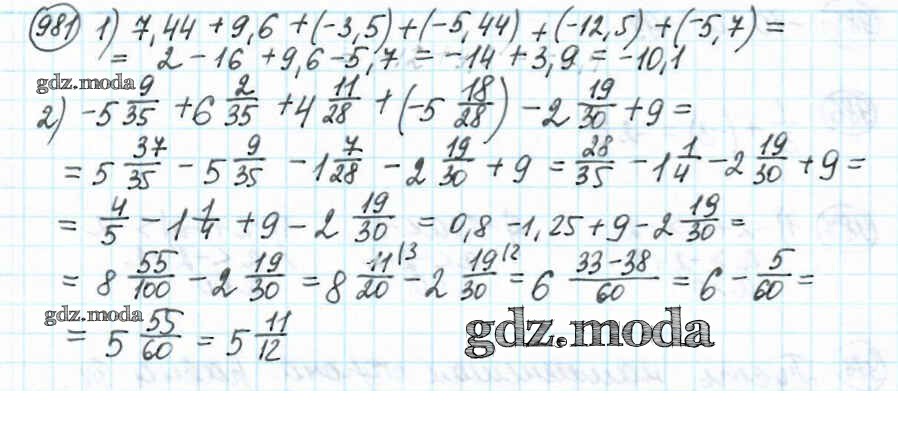 981 1) 7,44 + 9,6 + (-3,5) + (-5,44) + (-12,5) + (-5,7) =
= 2 - 16 + 9,6 - 5,7 = -14 + 3,9 = -10,1
gdz.moda
2) -5 9/35 + 6 2/35 + 4 11/28 + (-5 18/28) - 2 19/30 + 9 =
= 5 37/35 - 5 9/35 - 1 7/28 - 2 19/30 + 9 = 28/35 - 1 1/4 - 2 19/30 + 9 =
= 4/5 - 1 1/4 + 9 - 2 19/30 = 0,8 - 1,25 + 9 - 2 19/30 =
= 8 55/100 - 2 19/30 = 8 11/20 |3 - 2 19/30 |2 = 6 33-38/60 = 6 - 5/60 =
gdz.moda
= 5 55/60 = 5 11/12
gdz.moda